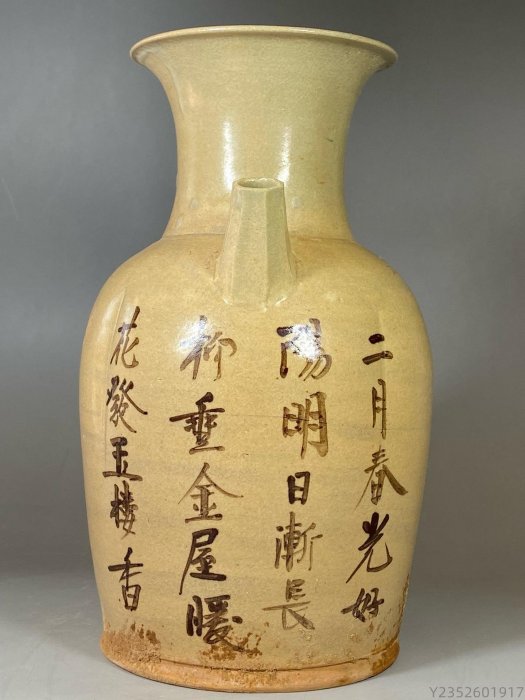 二月春光好
陽明日漸長
柳垂金屋暖
花發玉楼香
Y2352601917